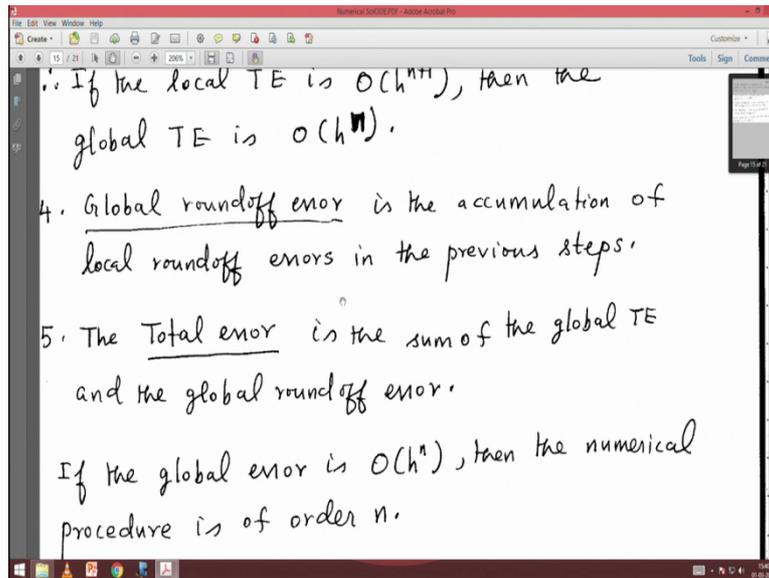 Numerical SolODE.PDF - Adobe Acrobat Pro
File Edit View Window Help
Create
Customize
15 / 21
206%
Tools Sign Comme
∴ If the local TE is O(hⁿ⁺¹), then the
global TE is O(hⁿ).
4. Global roundoff error is the accumulation of
local roundoff errors in the previous steps.
5. The Total error is the sum of the global TE
and the global roundoff error.
If the global error is O(hⁿ), then the numerical
procedure is of order n.
Page 15 of 21